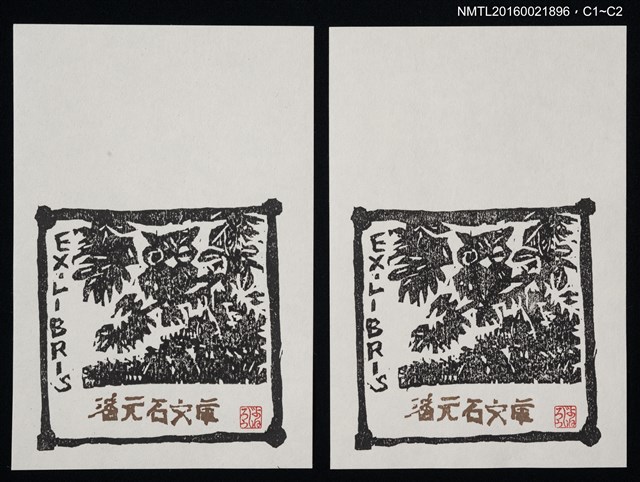 NMTL20160021896，C1~C2
EX-LIBRIS
潘元石文庫
EX-LIBRIS
潘元石文庫